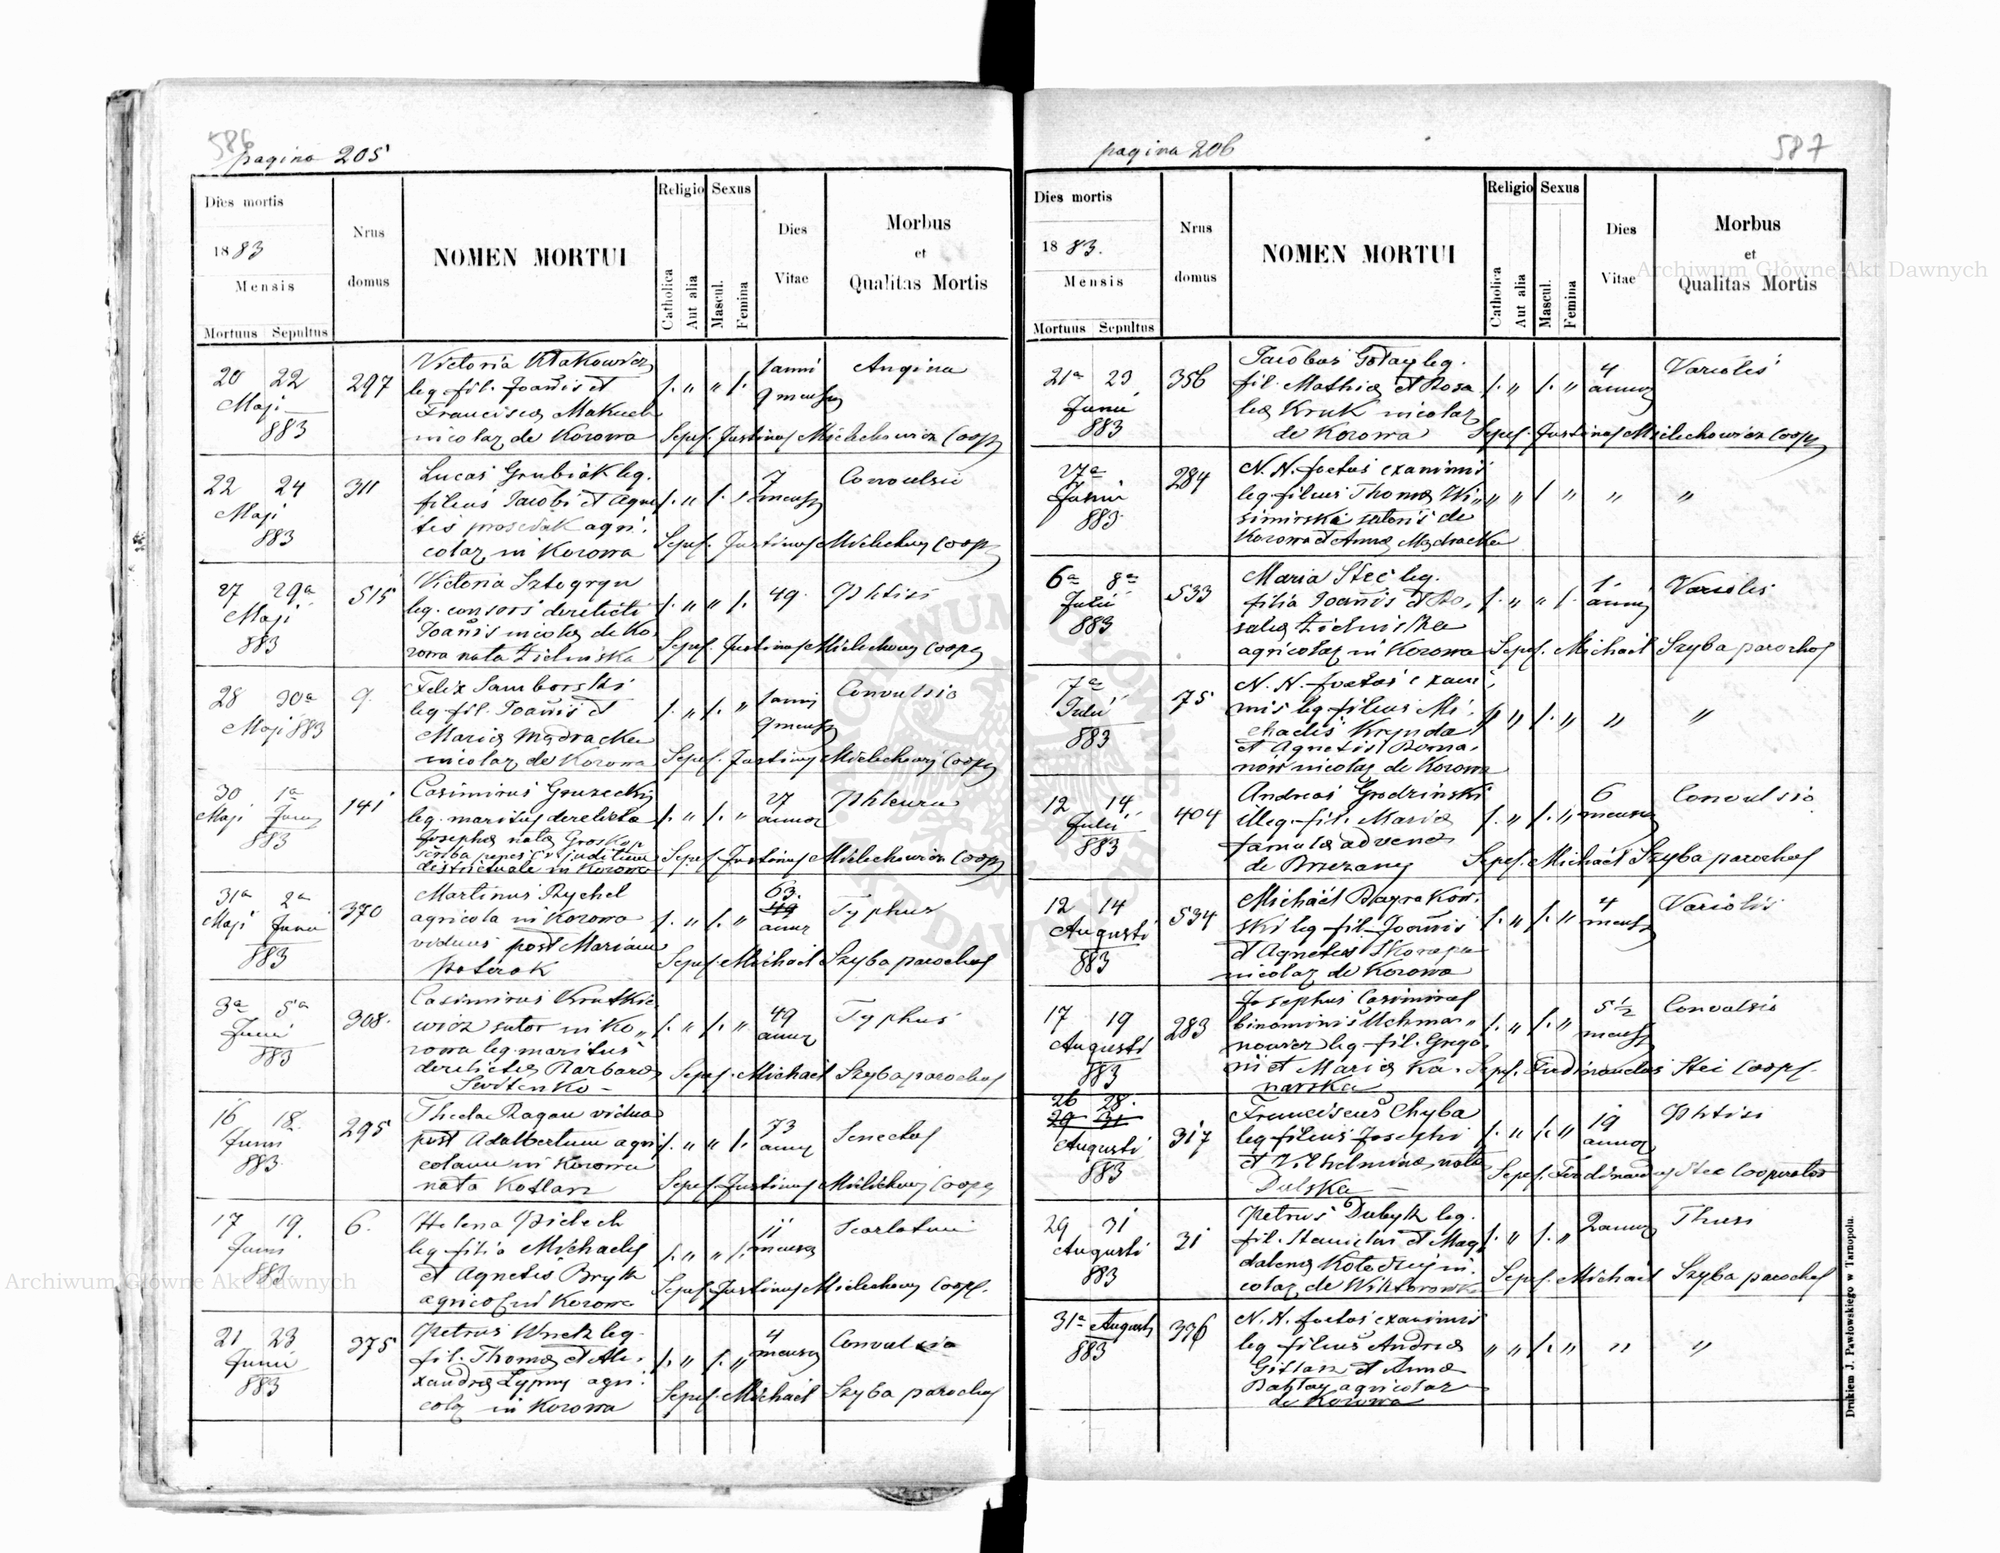 586
pagina 205
Dies mortis
1883
Mensis
Mortuus Sepultus
Nrus
domus
NOMEN MORTUI
Religio
Catholica
Aut alia
Sexus
Mascul.
Femina
Dies
Vitae
Morbus
et
Qualitas Mortis
20 22
Maji
883
297
Victoria
leg. fil. Joannis et
Francisca
de Kozowa
1 anni
9 mens
Angina
Sepel. Justinus Mielechowicz Coop
22 24
Maji
883
311
Lucas Grubiak leg.
filius Jacobi et Agne
tis agri
colar in Kozowa
7
mens
Convulsio
Sepel. Justinus Mielechowicz Coop
27 29a
Maji
883
515
Victoria Sztogryn
leg. consors derelicti
Joannis de Ko
zowa nata Zielinska
49
Phtisis
Sepel. Justinus Mielechowicz Coop
28 30a
Maji 883
9.
Felix Samborski
leg. fil. Joannis et
Maria Mądracka
de Kozowa
1 anni
9 mens
Convulsio
Sepel. Justinus Mielechowicz Coop
30 1a
Maji Junii
883
141
Casimirus Gruzecki
leg. maritus derelicta
Josepha nata
scriba penes C. r. judicium
districtuale in Kozowa
27
annor
Sepel. Justinus Mielechowicz Coop
31a 2a
Maji Junii
883
370
Martinus Rychel
agricola in Kozowa
viduus post Mariam
63.
49
annor
Typhus
Sepel. Michael Szyba parochus
3a 5a
Junii
883
308.
Casimirus Krutkie
wicz sutor in Ko
zowa leg. maritus
derelictae Barbarae
49
annor
Typhus
Sepel. Michael Szyba parochus
16 18
Junii
883
295
Thecla Ragan vidua
post Adalbertum agri
colam in Kozowa
nata Kotlarz
73
annor
Senectus
Sepel. Justinus Mielechowicz Coop
17 19.
Junii
883
6.
Helena Pielech
leg. filia Michaelis
et Agnetis Bryk
agricol in Kozowa
11
mens
Scarlatina
Sepel. Justinus Mielechowicz Coop.
21 23
Junii
883
375
Petrus leg.
fil. Thomae et Ale
xandrae agri
colar in Kozowa
4
mens
Convulsio
Sepel. Michael Szyba parochus
pagina 206
587
Dies mortis
1883.
Mensis
Mortuus Sepultus
Nrus
domus
NOMEN MORTUI
Religio
Catholica
Aut alia
Sexus
Mascul.
Femina
Dies
Vitae
Morbus
et
Qualitas Mortis
21a 23
Junii
883
356
Jacobus leg.
fil. Mathiae et Rosa
lia Kruk
de Kozowa
4
annor
Variolis
Sepel. Justinus Mielechowicz Coop
27a
Junii
883
284
N. N. foetus exanimis
leg. filius Thomae Wi
simirski sutoris de
Kozowa et Anna Mądracka
6a 8a
Julii
883
533
Maria Stec leg.
filia Joannis et Ro
salia Zielinska
agricolar in Kozowa
1
anni
Variolis
Sepel. Michael Szyba parochus
7a
Julii
883
75
N. N. foetus exani
mis leg. filius Mi
chaelis Krynda
et Agnetis Roma
nów de Kozowa
12 14
Julii
883
404
Andreas Grodzinski
illeg. fil. Maria
famula advena
de Brzezany
6
mens
Convulsio
Sepel. Michael Szyba parochus
12 14
Augusti
883
534
Michael Bayrakow
ski leg. fil. Joannis
et Agnetis Skorupa
de Kozowa
4
mens
Variolis
17 19
Augusti
883
283
Josephus Casimirus
binominis
leg. fil. Grego
rii et Maria Ka
5 1/2
mens
Convulsio
Sepel. Ferdinandus Stec Coop.
26 28.
29 31
Augusti
883
317
Franciscus Chyba
leg. filius Josephi
et Vilhelmina nata
Dulska
19
annor
Phtisis
Sepel. Ferdinandus Stec Cooperator
29 31
Augusti
883
31
Petrus Dubyk leg.
fil. Stanislai et Mag
dalena Kołodziej
colar de Wiktorowka
2 annor
Tussis
Sepel. Michael Szyba parochus
31a Augusti
883
336
N. N. foetus exanimis
leg. filius Andreae
et Anna
agricolar
de Kozowa
Drukiem J. Pawłowskiego w Tarnopolu.
Archiwum Główne Akt Dawnych
Archiwum Główne Akt Dawnych
ARCHIWUM GŁÓWNE AKT DAWNYCH